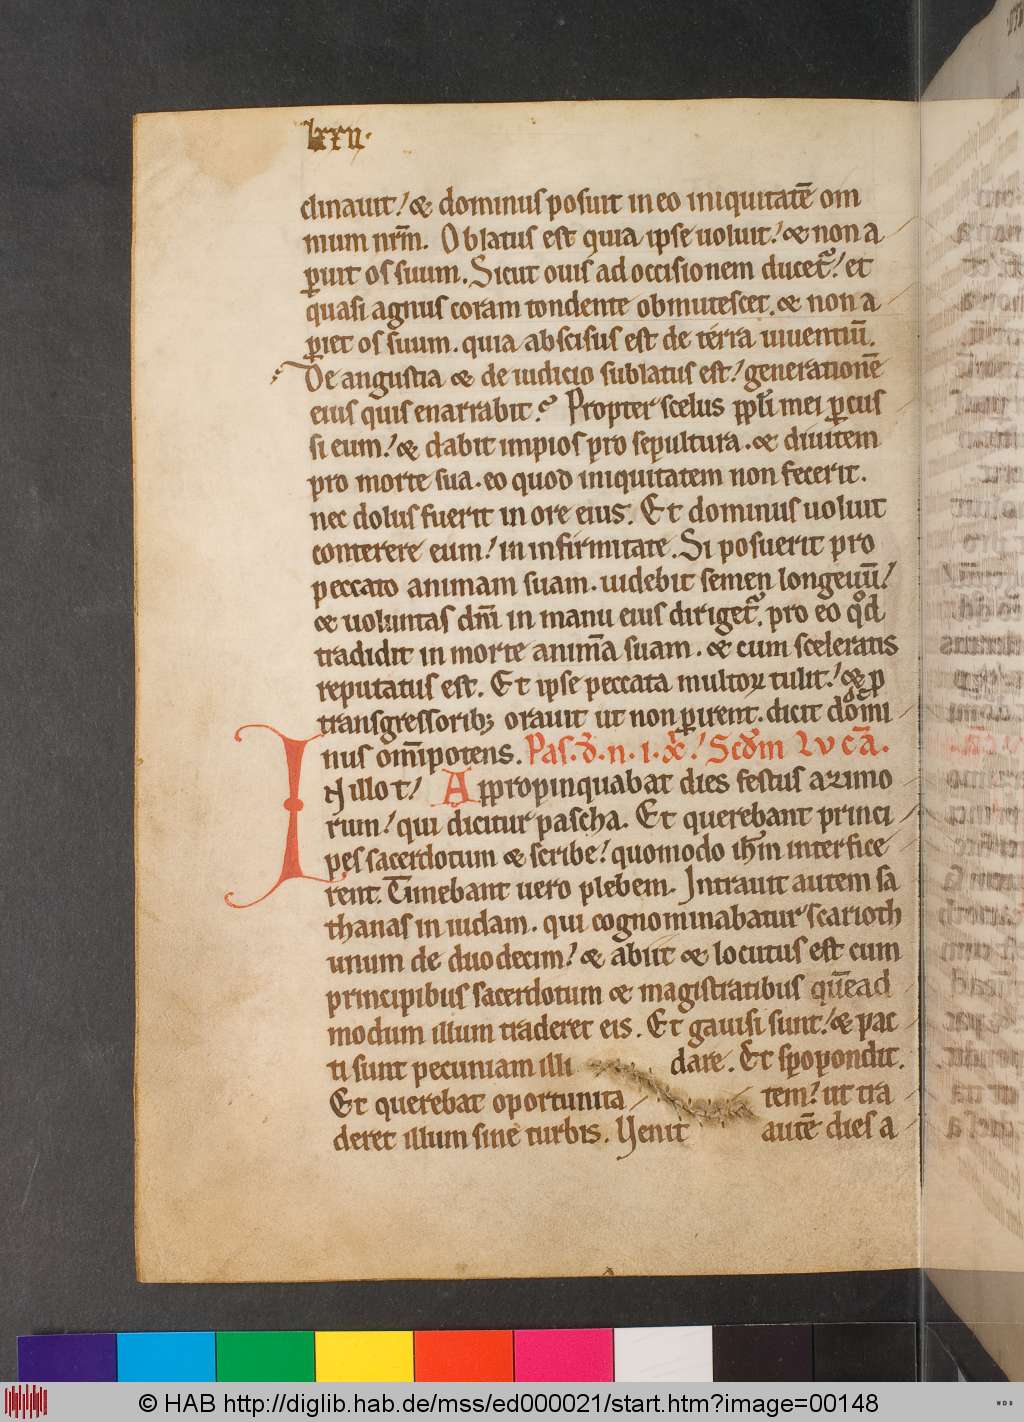 lxxii.
clinauit! & dominus posuit in eo iniquitatē om
nium nr̄m. Oblatus est quia ipse uoluit! & non a
ꝑuit os suum. Sicut ouis ad occisionem ducet᷑! et
quasi agnus coram tondente obmutescet. & non a
ꝑiet os suum. quia abscisus est de terra uiuentiū.
De angustia & de iudicio sublatus est! generationē
eius quis enarrabit? Propter scelus ppl̄i mei ꝑcus
si eum! & dabit impios pro sepultura. & diuitem
pro morte sua. eo quod iniquitatem non fecerit.
nec dolus fuerit in ore eius. Et dominus uoluit
conterere eum! in infirmitate. Si posuerit pro
peccato animam suam. uidebit semen longeuū!
& uoluntas dn̄i in manu eius diriget᷑. pro eo qͦd
tradidit in morte anim̄a suam. & cum sceleratis
reputatus est. Et ipse peccata multoꝝ tulit! & p
transgressorib; orauit ut non ꝑirent. dicit domi
nus om̄ipotens. Pas. d̄. n. i. x̄. Scdm Lucā.
IN illo t! Appropinquabat dies festus azimo
rum! qui dicitur pascha. Et querebant princi
pes sacerdotum & scribe! quomodo ih̄m interfice
rent. Timebant uero plebem. Intrauit autem sa
thanas in iudam. qui cognominabatur scarioth
unum de duodecim! & abiit & locutus est cum
principibus sacerdotum & magistratibus quēad
modum illum traderet eis. Et gauisi sunt! & pac
ti sunt pecuniam illi dare. Et spopondit.
Et querebat oportunita tem! ut tra
deret illum sine turbis. Uenit autē dies a
© HAB http://diglib.hab.de/mss/ed000021/start.htm?image=00148